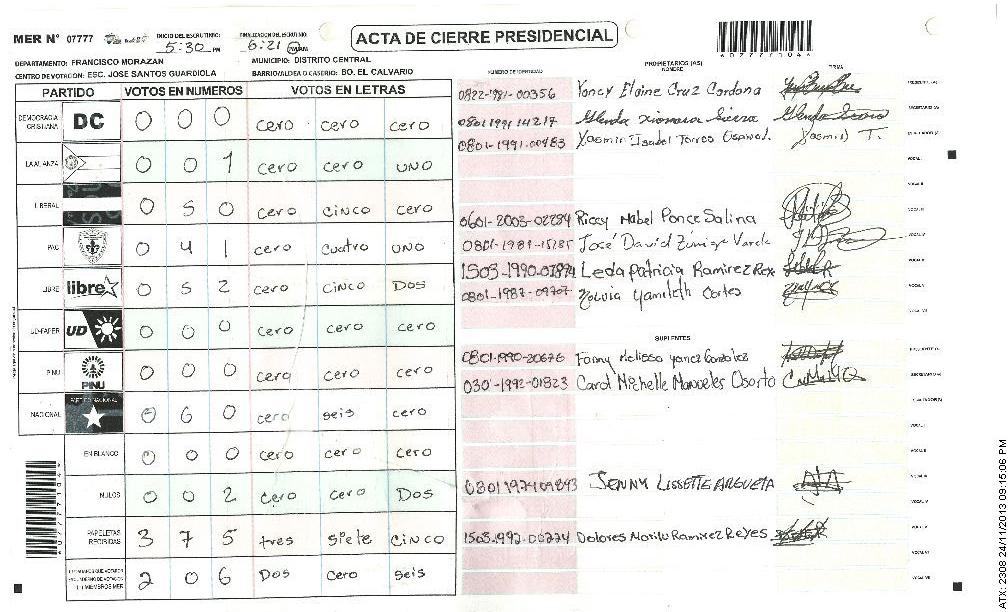 MER N° 07777 INICIO DEL ESCRUTINIO: 5:30 PM FINALIZACION DEL ESCRUTINIO: 6:21 PM/AM ACTA DE CIERRE PRESIDENCIAL
DEPARTAMENTO: FRANCISCO MORAZAN MUNICIPIO: DISTRITO CENTRAL
CENTRO DE VOTACION: ESC. JOSE SANTOS GUARDIOLA BARRIO/ALDEA O CASERIO: BO. EL CALVARIO
PARTIDO VOTOS EN NUMEROS VOTOS EN LETRAS
DEMOCRACIA CRISTIANA DC 0 0 0 cero cero cero
LA ALIANZA 0 0 1 cero cero UNO
LIBERAL 0 5 0 cero CINCO cero
PAC 0 4 1 cero cuatro UNO
LIBRE libre 0 5 2 cero CINCO DOS
UD-FAPER UD 0 0 0 cero cero cero
PINU PINU 0 0 0 cero cero cero
NACIONAL PARTIDO NACIONAL 0 6 0 cero seis cero
EN BLANCO 0 0 0 cero cero cero
NULOS 0 0 2 cero cero DOS
PAPELETAS RECIBIDAS 3 7 5 tres siete CINCO
2 0 6 DOS cero seis
NUMERO DE IDENTIDAD PROPIETARIOS (AS) NOMBRE FIRMA
0822-1981-00356 Yoncy Elaine Cruz Cardona
0801 1991 14217 Glenda Xiomara Sierra
0801-1991-00483 Yasmin Isabel Torres
0601-2003-02284 Riccy Mabel Ponce Salina
José David Zúniga Varela
Leda Patricia Ramirez Rey
0801-1987-09707 Yamileth Cortes
SUPLENTES
0801-1990-20676 Fanny Melissa Yanez Gonzalez
030-1992-01823 Carol Michelle Manueles Osorto
JENNY LISSETTE ARGUETA
Dolores Marilu Ramirez Reyes
*0777104*
ATX: 2308 24/11/2013 09:15:06 PM